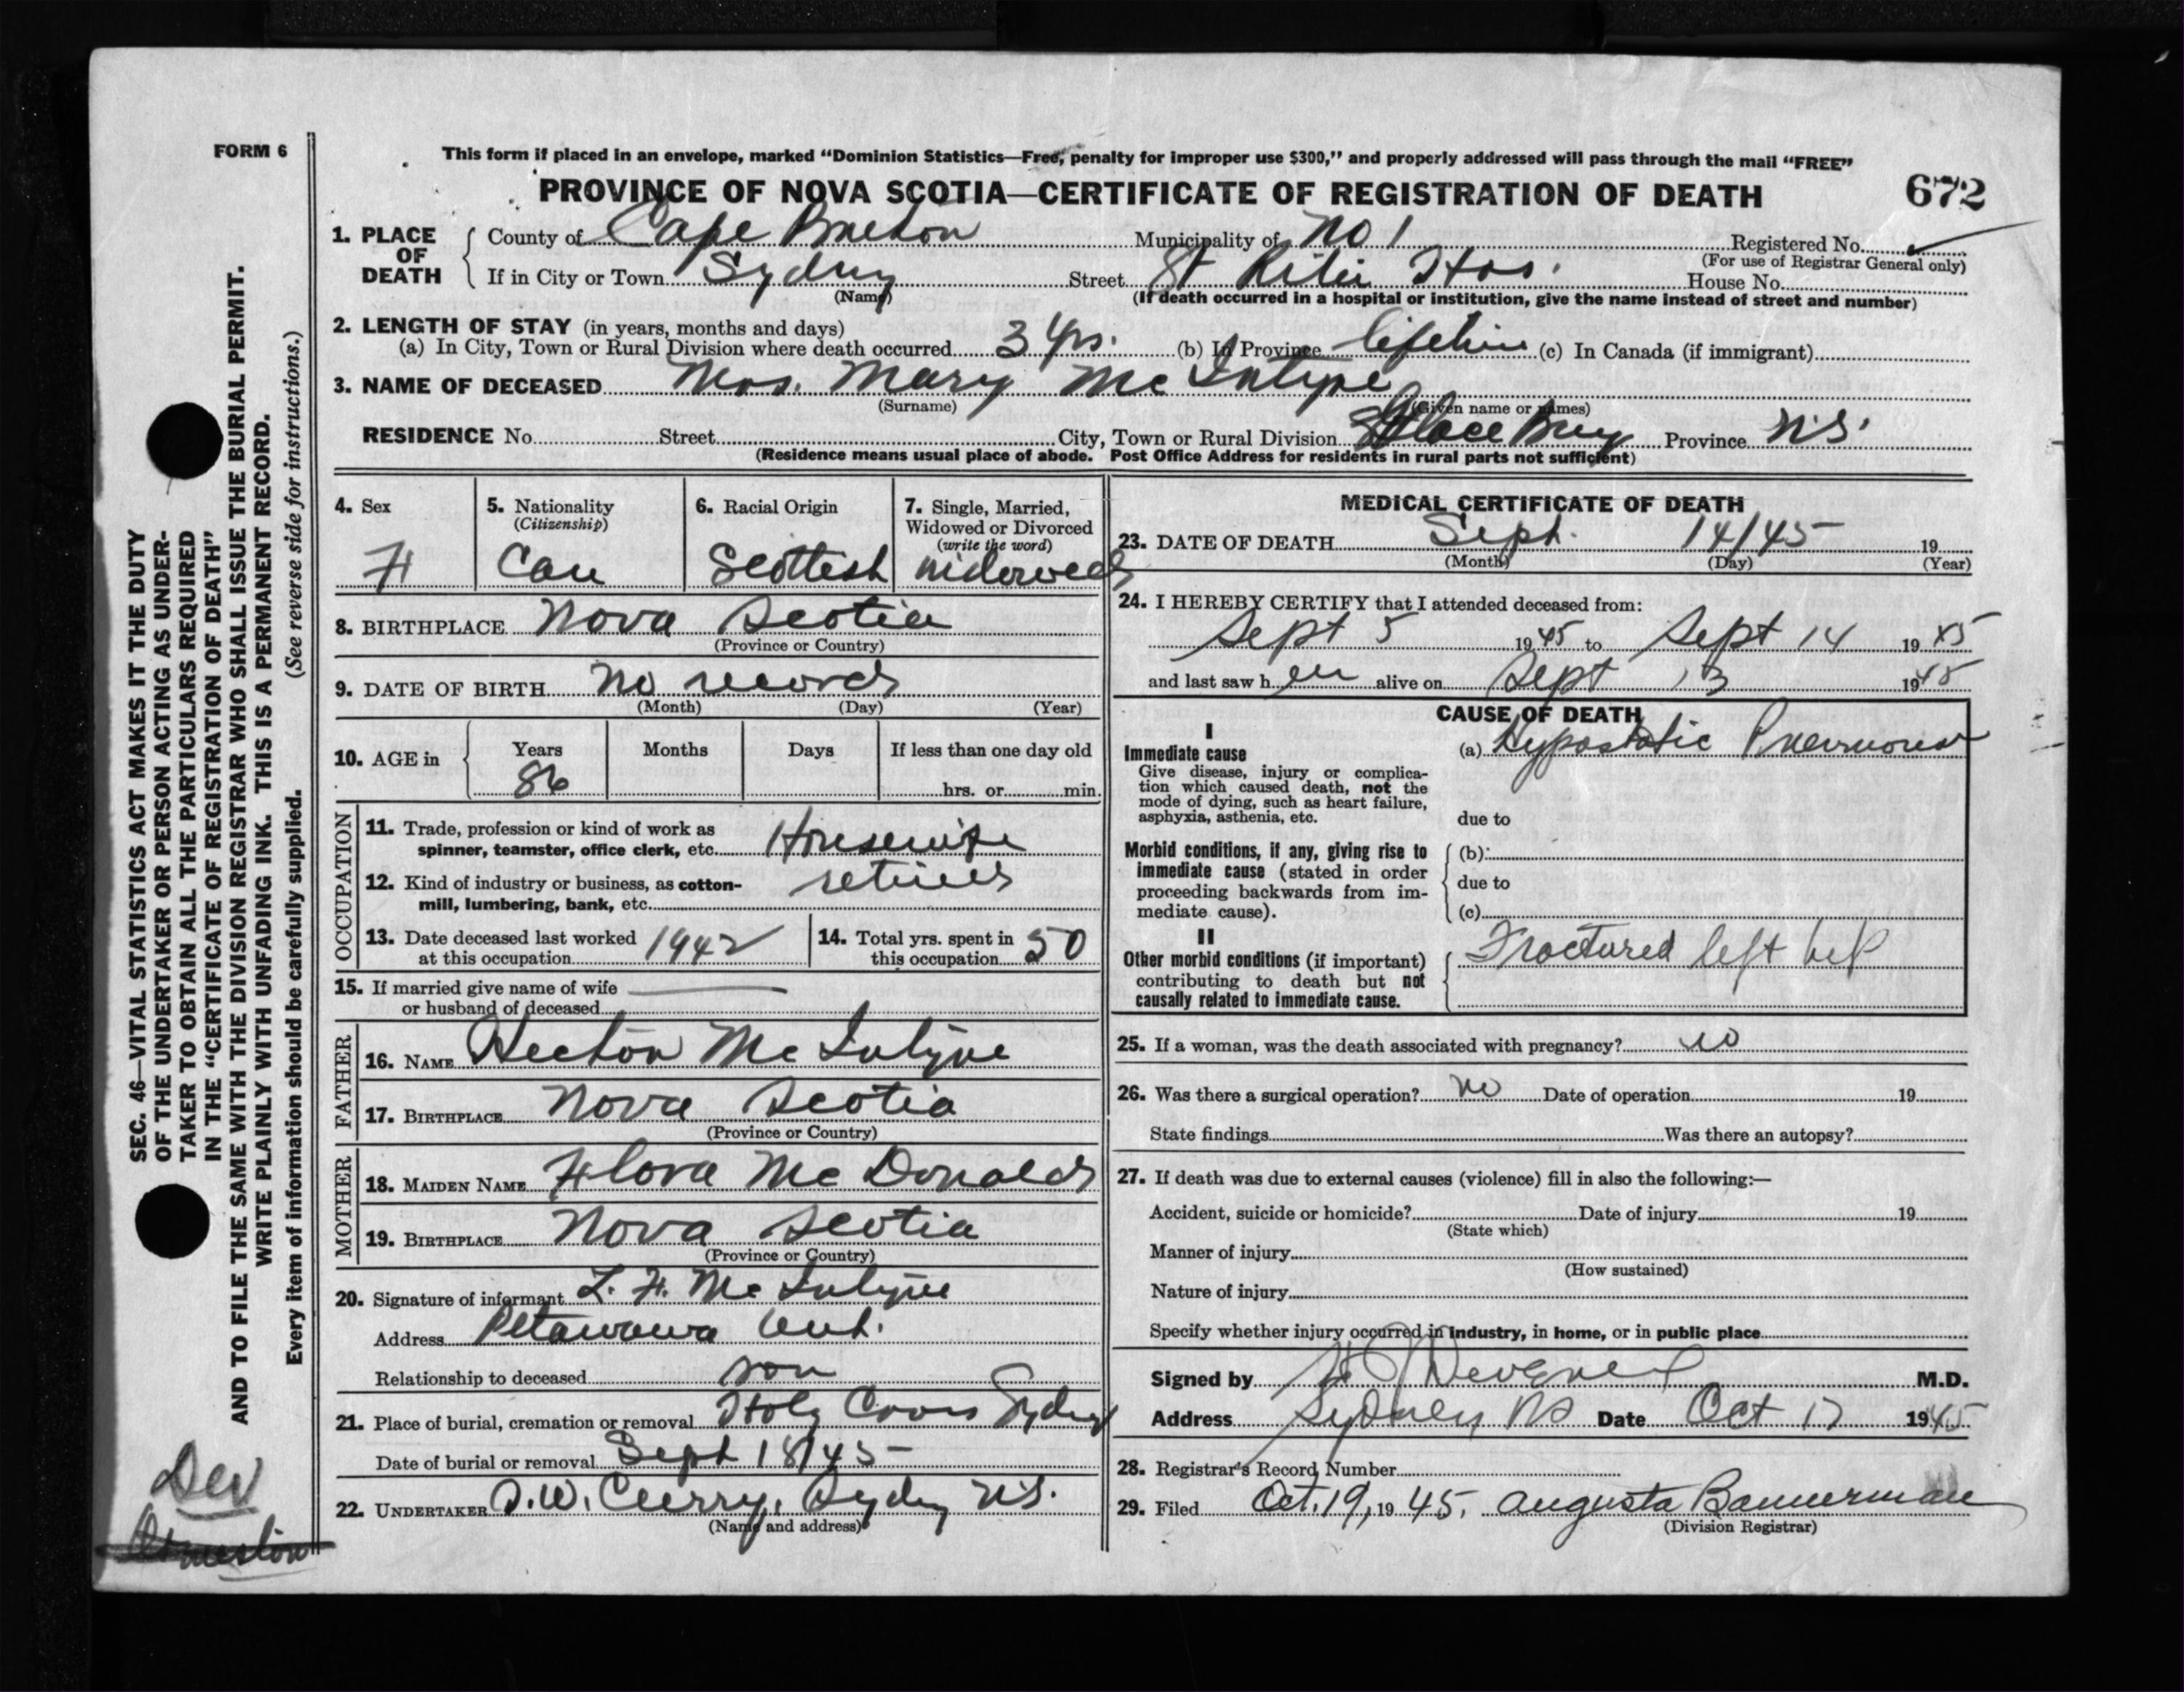 FORM 6
This form if placed in an envelope, marked “Dominion Statistics—Free, penalty for improper use $300,” and properly addressed will pass through the mail “FREE”
PROVINCE OF NOVA SCOTIA—CERTIFICATE OF REGISTRATION OF DEATH
672
1. PLACE OF DEATH
County of Cape Breton Municipality of No 1 Registered No.
(For use of Registrar General only)
If in City or Town Sydney Street St Rita Hos. House No.
(Name) (If death occurred in a hospital or institution, give the name instead of street and number)
2. LENGTH OF STAY (in years, months and days)
(a) In City, Town or Rural Division where death occurred 3 yrs. (b) In Province lifetime (c) In Canada (if immigrant)
3. NAME OF DECEASED Mrs. Mary Mc Intyre
(Surname) (Given name or names)
RESIDENCE No. Street City, Town or Rural Division Glace Bay Province N.S.
(Residence means usual place of abode. Post Office Address for residents in rural parts not sufficient)
4. Sex
F
5. Nationality
(Citizenship)
Can
6. Racial Origin
Scottish
7. Single, Married,
Widowed or Divorced
(write the word)
widowed
8. BIRTHPLACE Nova Scotia
(Province or Country)
9. DATE OF BIRTH no record
(Month) (Day) (Year)
10. AGE in
Years Months Days If less than one day old
86 hrs. or min.
OCCUPATION
11. Trade, profession or kind of work as
spinner, teamster, office clerk, etc. Housewife
12. Kind of industry or business, as cotton-
mill, lumbering, bank, etc. retired
13. Date deceased last worked
at this occupation 1942
14. Total yrs. spent in
this occupation 50
15. If married give name of wife
or husband of deceased
FATHER
16. NAME Hector Mc Intyre
17. BIRTHPLACE Nova Scotia
(Province or Country)
MOTHER
18. MAIDEN NAME Flora Mc Donald
19. BIRTHPLACE Nova Scotia
(Province or Country)
20. Signature of informant L. F. Mc Intyre
Address Petawawa Ont.
Relationship to deceased son
21. Place of burial, cremation or removal Holy Cross Sydney
Date of burial or removal Sept 18/45
22. UNDERTAKER D.W. Curry, Sydney N.S.
(Name and address)
MEDICAL CERTIFICATE OF DEATH
23. DATE OF DEATH Sept. 14/45 19
(Month) (Day) (Year)
24. I HEREBY CERTIFY that I attended deceased from:
Sept 5 1945 to Sept 14 1945
and last saw her alive on Sept 13 1945
CAUSE OF DEATH
I
Immediate cause
Give disease, injury or complica-
tion which caused death, not the
mode of dying, such as heart failure,
asphyxia, asthenia, etc.
(a) Hypostatic Pneumonia
due to
Morbid conditions, if any, giving rise to
immediate cause (stated in order
proceeding backwards from im-
mediate cause).
(b)
due to
(c)
II
Other morbid conditions (if important)
contributing to death but not
causally related to immediate cause.
Fractured left hip
25. If a woman, was the death associated with pregnancy? no
26. Was there a surgical operation? no Date of operation 19
State findings Was there an autopsy?
27. If death was due to external causes (violence) fill in also the following:—
Accident, suicide or homicide? Date of injury 19
(State which)
Manner of injury
(How sustained)
Nature of injury
Specify whether injury occurred in industry, in home, or in public place
Signed by M.D.
Address Sydney NS Date Oct 17 1945
28. Registrar's Record Number
29. Filed Oct. 19, 1945. Augusta Bannerman
(Division Registrar)
SEC. 46—VITAL STATISTICS ACT MAKES IT THE DUTY
OF THE UNDERTAKER OR PERSON ACTING AS UNDER-
TAKER TO OBTAIN ALL THE PARTICULARS REQUIRED
IN THE “CERTIFICATE OF REGISTRATION OF DEATH”
AND TO FILE THE SAME WITH THE DIVISION REGISTRAR WHO SHALL ISSUE THE BURIAL PERMIT.
WRITE PLAINLY WITH UNFADING INK. THIS IS A PERMANENT RECORD.
Every item of information should be carefully supplied. (See reverse side for instructions.)
Dev